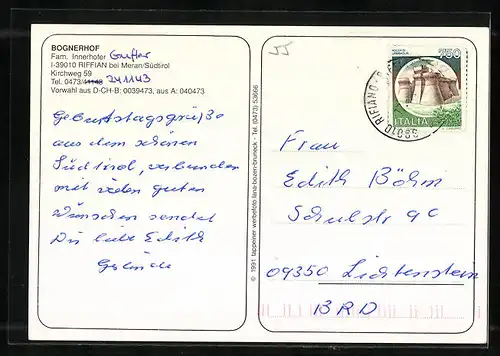 BOGNERHOF
Fam. Innerhofer
I-39010 RIFFIAN bei Meran/Südtirol
Kirchweg 59
Tel. 0473/ 241143
Vorwahl aus D-CH-B: 0039473, aus A: 040473
Geburtstagsgrüße
aus dem schönen
Südtirol, verbunden
mit vielen guten
Wünschen sendet
Dir liebe Edith
© 1991 tappeiner werbefoto lana-bozen-bruneck - Tel. (0473) 53666
55
750
ITALIA
39010 RIFIANO
Frau
Edith Böhm
Schulstr 9c
09350 Lichtenstein
BRD